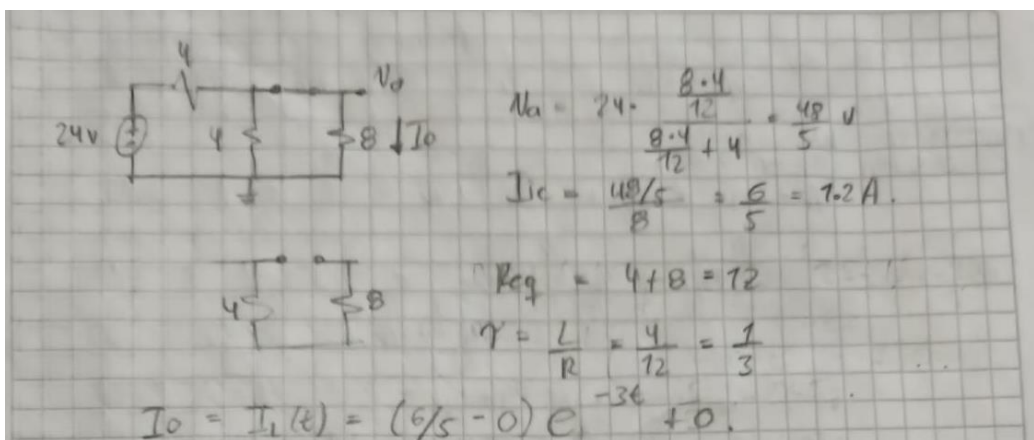 4
24v
4
8
Va
↓ Io
Va = 24 · (8·4/12) / (8·4/12 + 4) = 48/5 V
= (48/5)/8 = 6/5 = 1.2 A.
4
8
Req = 4+8 = 12
τ = L/R = 4/12 = 1/3
Io = IL(t) = (6/5 - 0) e^-3t + 0.